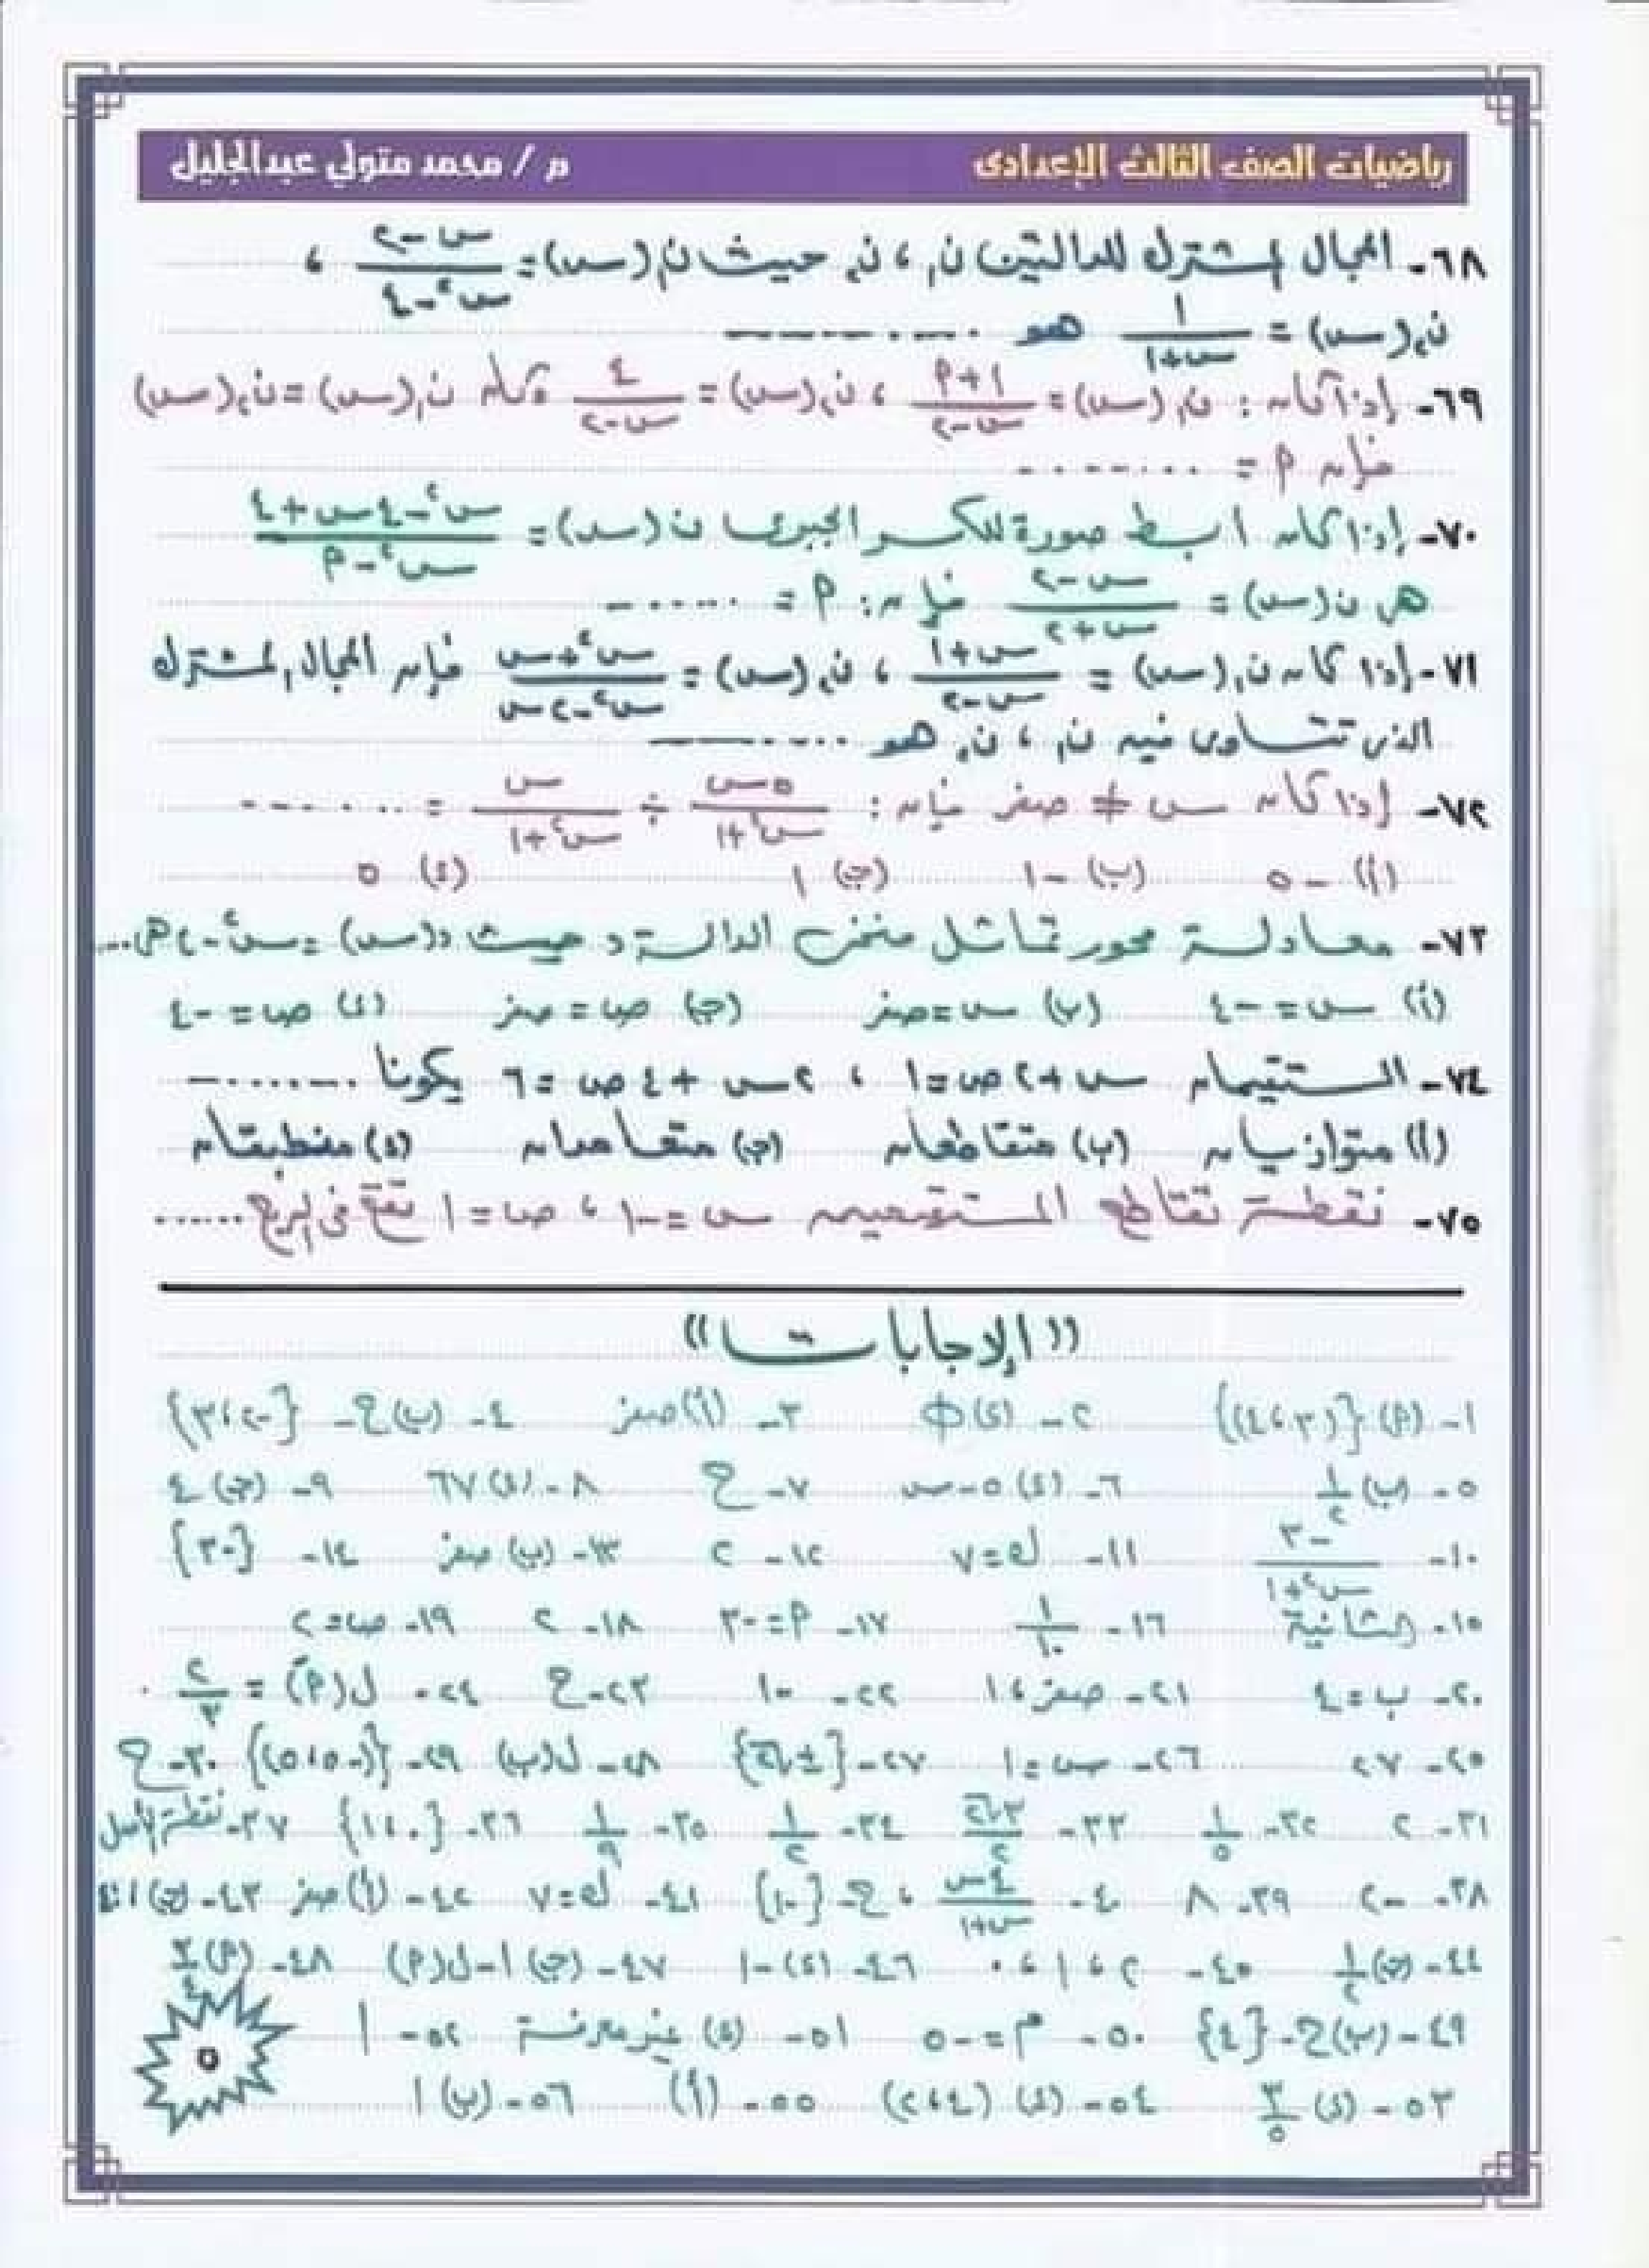 رياضيات الصف الثالث الإعدادى م / محمد متولي عبدالجليل
٦٨- المجال المشترك للدالتين ن₁ ، ن₂ حيث ن₁(س) = (س-٢)/(س²-٤) ،
ن₂(س) = ١/(س+١) هو ..........
٦٩- إذا كان : ن₁(س) = (١+م)/(س-٢) ، ن₂(س) = ٤/(س-٢) وكان ن₁(س) = ن₂(س)
فإن م = ........
٧٠- إذا كان ابسط صورة للكسر الجبرى ن(س) = (س²-٤س+٤)/(س²-م)
هى ن(س) = (س-٢)/(س+٢) فإن : م = .......
٧١- إذا كان ن₁(س) = (س+١)/(س-٢) ، ن₂(س) = (س²+س)/(س²-٢س) فإن المجال المشترك
الذى تتساوى فيه ن₁ ، ن₂ هو ..........
٧٢- إذا كان س ≠ صفر فإن : ٥س/(س²+١) ÷ س/(س²+١) = ........
(أ) -٥ (ب) -١ (ج) ١ (د) ٥
٧٣- معادلة محور تماثل منحنى الدالة د حيث د(س) = س²-٤ هى...
(أ) س = -٤ (ب) س = صفر (ج) ص = صفر (د) ص = -٤
٧٤- المستقيمان س + ٢ص = ١ ، ٢س + ٤ص = ٦ يكونا ..........
(أ) متوازيان (ب) متقاطعان (ج) متعامدان (د) منطبقان
٧٥- نقطة تقاطع المستقيمين س = -١ ، ص = ١ تقع فى الربع ......
((الإجابات))
١- (م) {(٣،٤)} ٢- (د) Φ ٣- (أ) صفر ٤- (ب) ح - {-٢،٣}
٥- (ب) ١/٢ ٦- (د) ٥-س ٧- ح ٨- (د) ٦٧ ٩- (ج) ٤
١٠- -٣/(س²+١) ١١- ك = ٧ ١٢- ٢ ١٣- (ب) صفر ١٤- {-٣}
١٥- الثانية ١٦- ١/١٠ ١٧- م = -٣ ١٨- ٢ ١٩- ص = ٢
٢٠- ب = ٤ ٢١- صفر ، ١ ٢٢- -١ ٢٣- ح ٢٤- ل(مَ) = ٢/٣
٢٥- ٧٢ ٢٦- س = ١ ٢٧- {±√٢} ٢٨- ل(ب) ٢٩- {(-٥،٥)} ٣٠- ح
٣١- ٢ ٣٢- ١/٥ ٣٣- ٣√٢/٢ ٣٤- ١/٢ ٣٥- ١/٩ ٣٦- {٠،١} ٣٧- نقطة الأصل
٣٨- -٢ ٣٩- ٨ ٤٠- ٤س/(س+١) ، ح - {-١} ٤١- ك = ٧ ٤٢- (أ) صفر ٤٣- (ج)
٤٤- (ج) ١/٢ ٤٥- ٢ ، ١ ، ٠ ٤٦- (د) -١ ٤٧- (ج) ١-ل(م) ٤٨- (م) ٣/٤
٤٩- (ب) ح - {٤} ٥٠- م = -٥ ٥١- (د) غير معرفة ٥٢- ١
٥٣- (د) ٣/٥ ٥٤- (د) (٢،٤) ٥٥- (أ) ٥٦- (ب) ١
٥